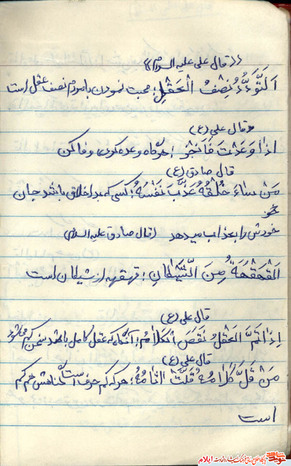 ((قال علی علیه السلام))
اَلتَّوَدُّدُ نِصْفُ الْعَقْلِ؛ محبت نمودن با مردم نصف عقل است
وقال علی (ع)
اِذا وَعَدْتَ فَانْجِز؛ هرگاه وعده کردی وفا کن
قال صادق (ع)
مَنْ ساءَ خُلْقُهُ عَذَّبَ نَفْسَهُ؛ کسی که بد اخلاق باشد جان
خودش را بعذاب میدهد (قال صادق علیه السلام
اَلْقَهْقَهَةُ مِنَ الشَّیْطانِ؛ قهقهه از شیطان است
قال علی (ع)
اِذا تَمَّ الْعَقْلُ نَقَصَ الْکَلامُ؛ آنگاه که عقل کامل باشد سخن کم میشود
قال علی (ع)
مَنْ قَلَّ کَلامُهُ قَلَّتْ اثامُهُ؛ هر که کم حرف است گناهش هم کم
است